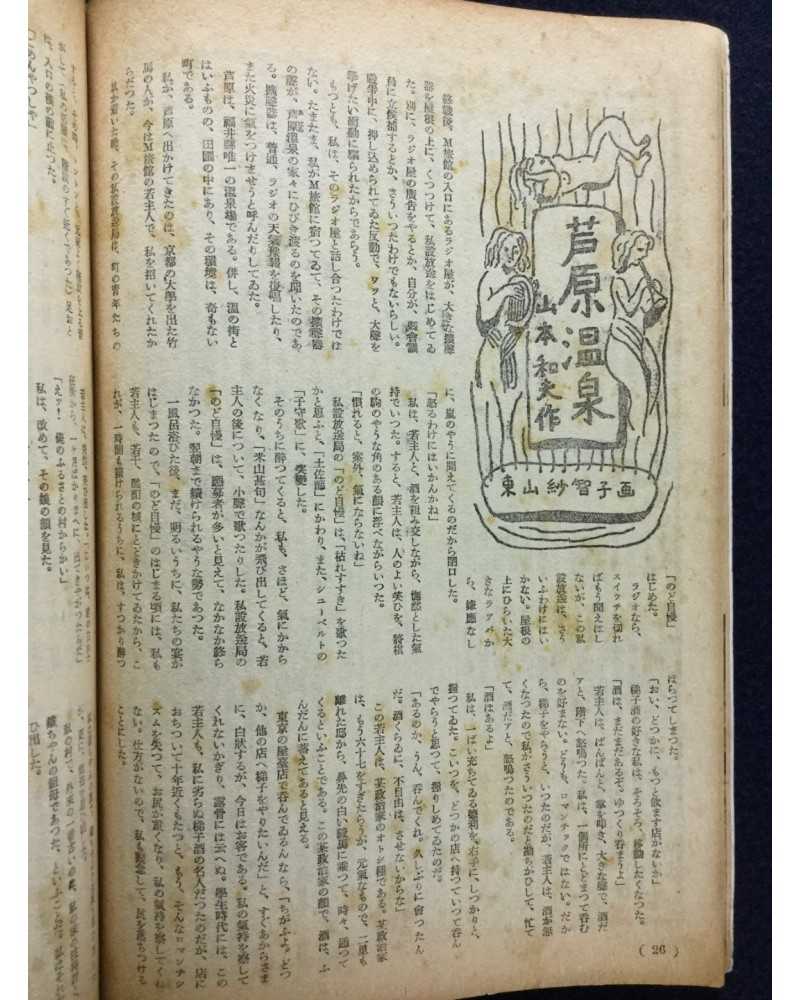 芦原温泉
山本和夫作
東山紗智子画
終戰後、M旅館の入口にあるラジオ屋が、大きな擴聲
器を屋根の上に、くつつけて、私設放送をはじめてゐ
た。別に、ラジオ屋の廣告をやるとか、自分が、縣會議
員に立候補するとか、さういつたわけでもないらしい。
戰爭中に、押し込められてゐた反動で、ワッと、大聲を
擧げたい衝動に驅られたからであらう。
もつとも、私は、そのラジオ屋と話し合つたわけでは
ない。たまたま、私がM旅館に宿つてゐて、その擴聲器
の聲が、芦原温泉の家々にひびき渡るのを聞いたのであ
る。擴聲器は、普通、ラジオの天氣豫報を復唱したり、
また火災に氣をつけませうと呼んだりしてゐた。
芦原は、福井縣唯一の温泉場である。併し、温の街と
はいふものの、田圃の中にあり、その環境は、奇もない
町である。
私が、芦原へ出かけてきたのは、京都の大學を出た竹
馬の人が、今はM旅館の若主人で、私を招いてくれたか
らだつた。
私が着いた晩、その私設放送局は、町の青年たちの
「のど自慢」を
はじめた。
ラジオなら、
スイッチを切れ
ばもう聞えはし
ないが、この私
設放送は、さう
いふわけにはい
かない。屋根の
上にひらいた大
きなラッパか
ら、嫌應なし
に、嵐のやうに聞えてくるのだから閉口した。
「怒るわけにはいかんかね」
私は、若主人と、酒を酌み交しながら、憮然とした氣
持でいつた。すると、若主人は、人のよい笑ひを、將棋
の駒のやうな角のある顔に浮べながらいつた。
「慣れると、案外、氣にならないね」
私設放送局の「のど自慢」は、「枯れすすき」を歌つた
かと思ふと、「土佐節」にかわり、また、シューベルトの
「子守歌」に、急變した。
そのうちに醉つてくると、私も、さほど、氣にかから
なくなり、「米山甚句」なんかが飛び出してくると、若
主人の後について、小聲で歌つたりした。私設放送局の
「のど自慢」は、應募者が多いと見えて、なかなか終ら
なかつた。翌朝まで續けられるやうな勢であつた。
一風呂浴びた後、まだ、明るいうちに、私たちの宴が
はじまつたので、「のど自慢」のはじまる頃には、私も
若主人も、若干、酩酊の域にとどきかけてゐたから、こ
れが、一時間も續けられるうちに、私は、すつかり醉つ
ぱらつてしまつた。
「おい、どつかに、もつと飲ます店がないか」
梯子酒の好きな私は、そろそろ、移動したくなつた。
「酒は、まだまだあるぞ、ゆつくり呑まうよ」
若主人は、ぱんぱんと、掌を叩き、大きな聲で、酒だ
アと、階下へ怒鳴つた。私は、一個所にとどまつて呑む
のを好まない。どうも、ロマンチックではない。だか
ら、梯子をやらうと、いつたのだが、若主人は、酒が無
くなつたので私がさういつたのだと勘ちがひして、慌て
て、酒だアと、怒鳴つたのである。
「酒はあるよ」
私は、一ぱい充ちてゐる德利を、右手に、しつかりと、
握つてゐた。こいつを、どつかの店へ持つていつて呑ん
でやらうと思つて、握りしめてゐたのだ。
「あるのか、うん、呑んでくれ。久しぶりに會つたん
だ。酒くらゐに、不自由は、させないからな」
この若主人は、某政治家のオトシ種である。某政治家
は、もう六十七をすぎたらうが、元氣なもので、二里も
離れた邸から、鼻先の白い競馬に乘つて、時々、廻つて
くるといふことである。この某政治家の顔で、酒は、ふ
んだんに蓄えてあると見える。
東京の屋臺店で呑んでゐるんなら、「ちがふよ。どつ
か、他の店へ梯子をやりたいんだ」と、すぐあからさま
に、白狀するが、今日はお客である。私の氣持を察して
くれないかぎり、露骨には云へぬ。學生時代には、この
若主人も、私に劣らぬ梯子酒の名人だつたのだが、店に
おちついて十年近くもたつと、もう、そんなロマンチシ
ズムを失つて、お尻が重くなり、私の氣持を察してくれ
ない。仕方がないので、私も觀念して、尻を落ちつける
ことにした。
( 26 )
に、入口の襖の前に止つた。
「こあんやつしや」
「えッ！ 俺のふるさとの村からかい」
私は、改めて、その娘の顔を見た。
娘ちやんの祖母であつた、といふことだ。
ひ出した。